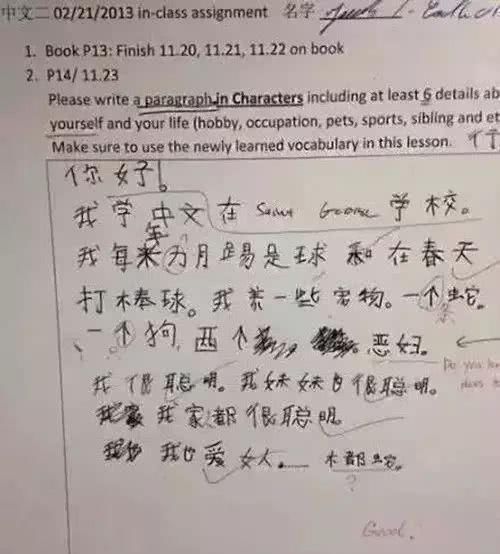 中文二 02/21/2013 in-class assignment 名字
1. Book P13: Finish 11.20, 11.21, 11.22 on book
2. P14/ 11.23
Please write a paragraph in Characters including at least 6 details ab
yourself and your life (hobby, occupation, pets, sports, sibling and et
Make sure to use the newly learned vocabulary in this lesson.
你好!
我学中文在 Saint George 学校。
年
我每 个月踢足球和在春天
打棒球。我养一些宠物。一个蛇
条
、一个狗, 两个 恶妇。
Do you
does
我很聪明。我妹妹也很聪明。
我家都很聪明。
我也爱女人。…… 木都蛇。
?
Good.